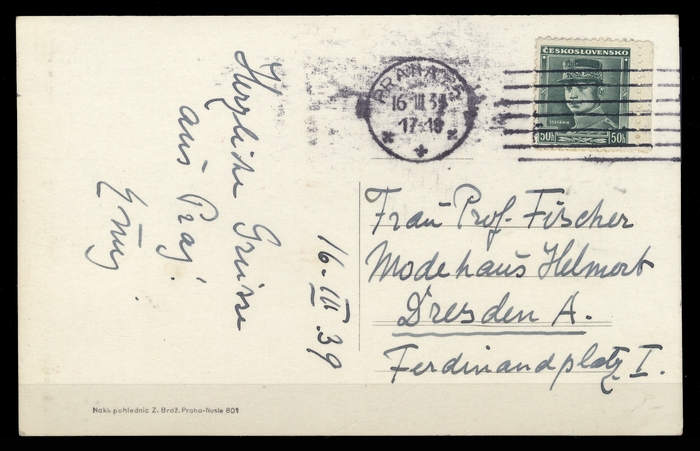 Herzliche Grüsse
aus Prag!
16. III. 39
PRAHA
16 III 39
17-18
ČESKOSLOVENSKO
ŠTEFÁNIK
50h 50h
Frau Prof. Fischer
Modehaus Helmert
Dresden A.
Ferdinandplatz I.
Nakl. pohlednic Z. Brož. Praha-Nusle 801